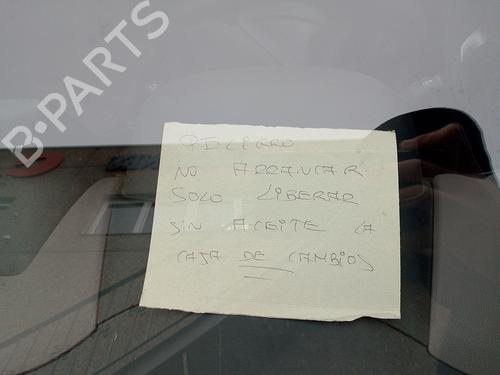 B-PARTS
PELIGRO
NO ARRANCAR
SOLO LIBERAR
SIN ACEITE LA
CAJA DE CAMBIOS